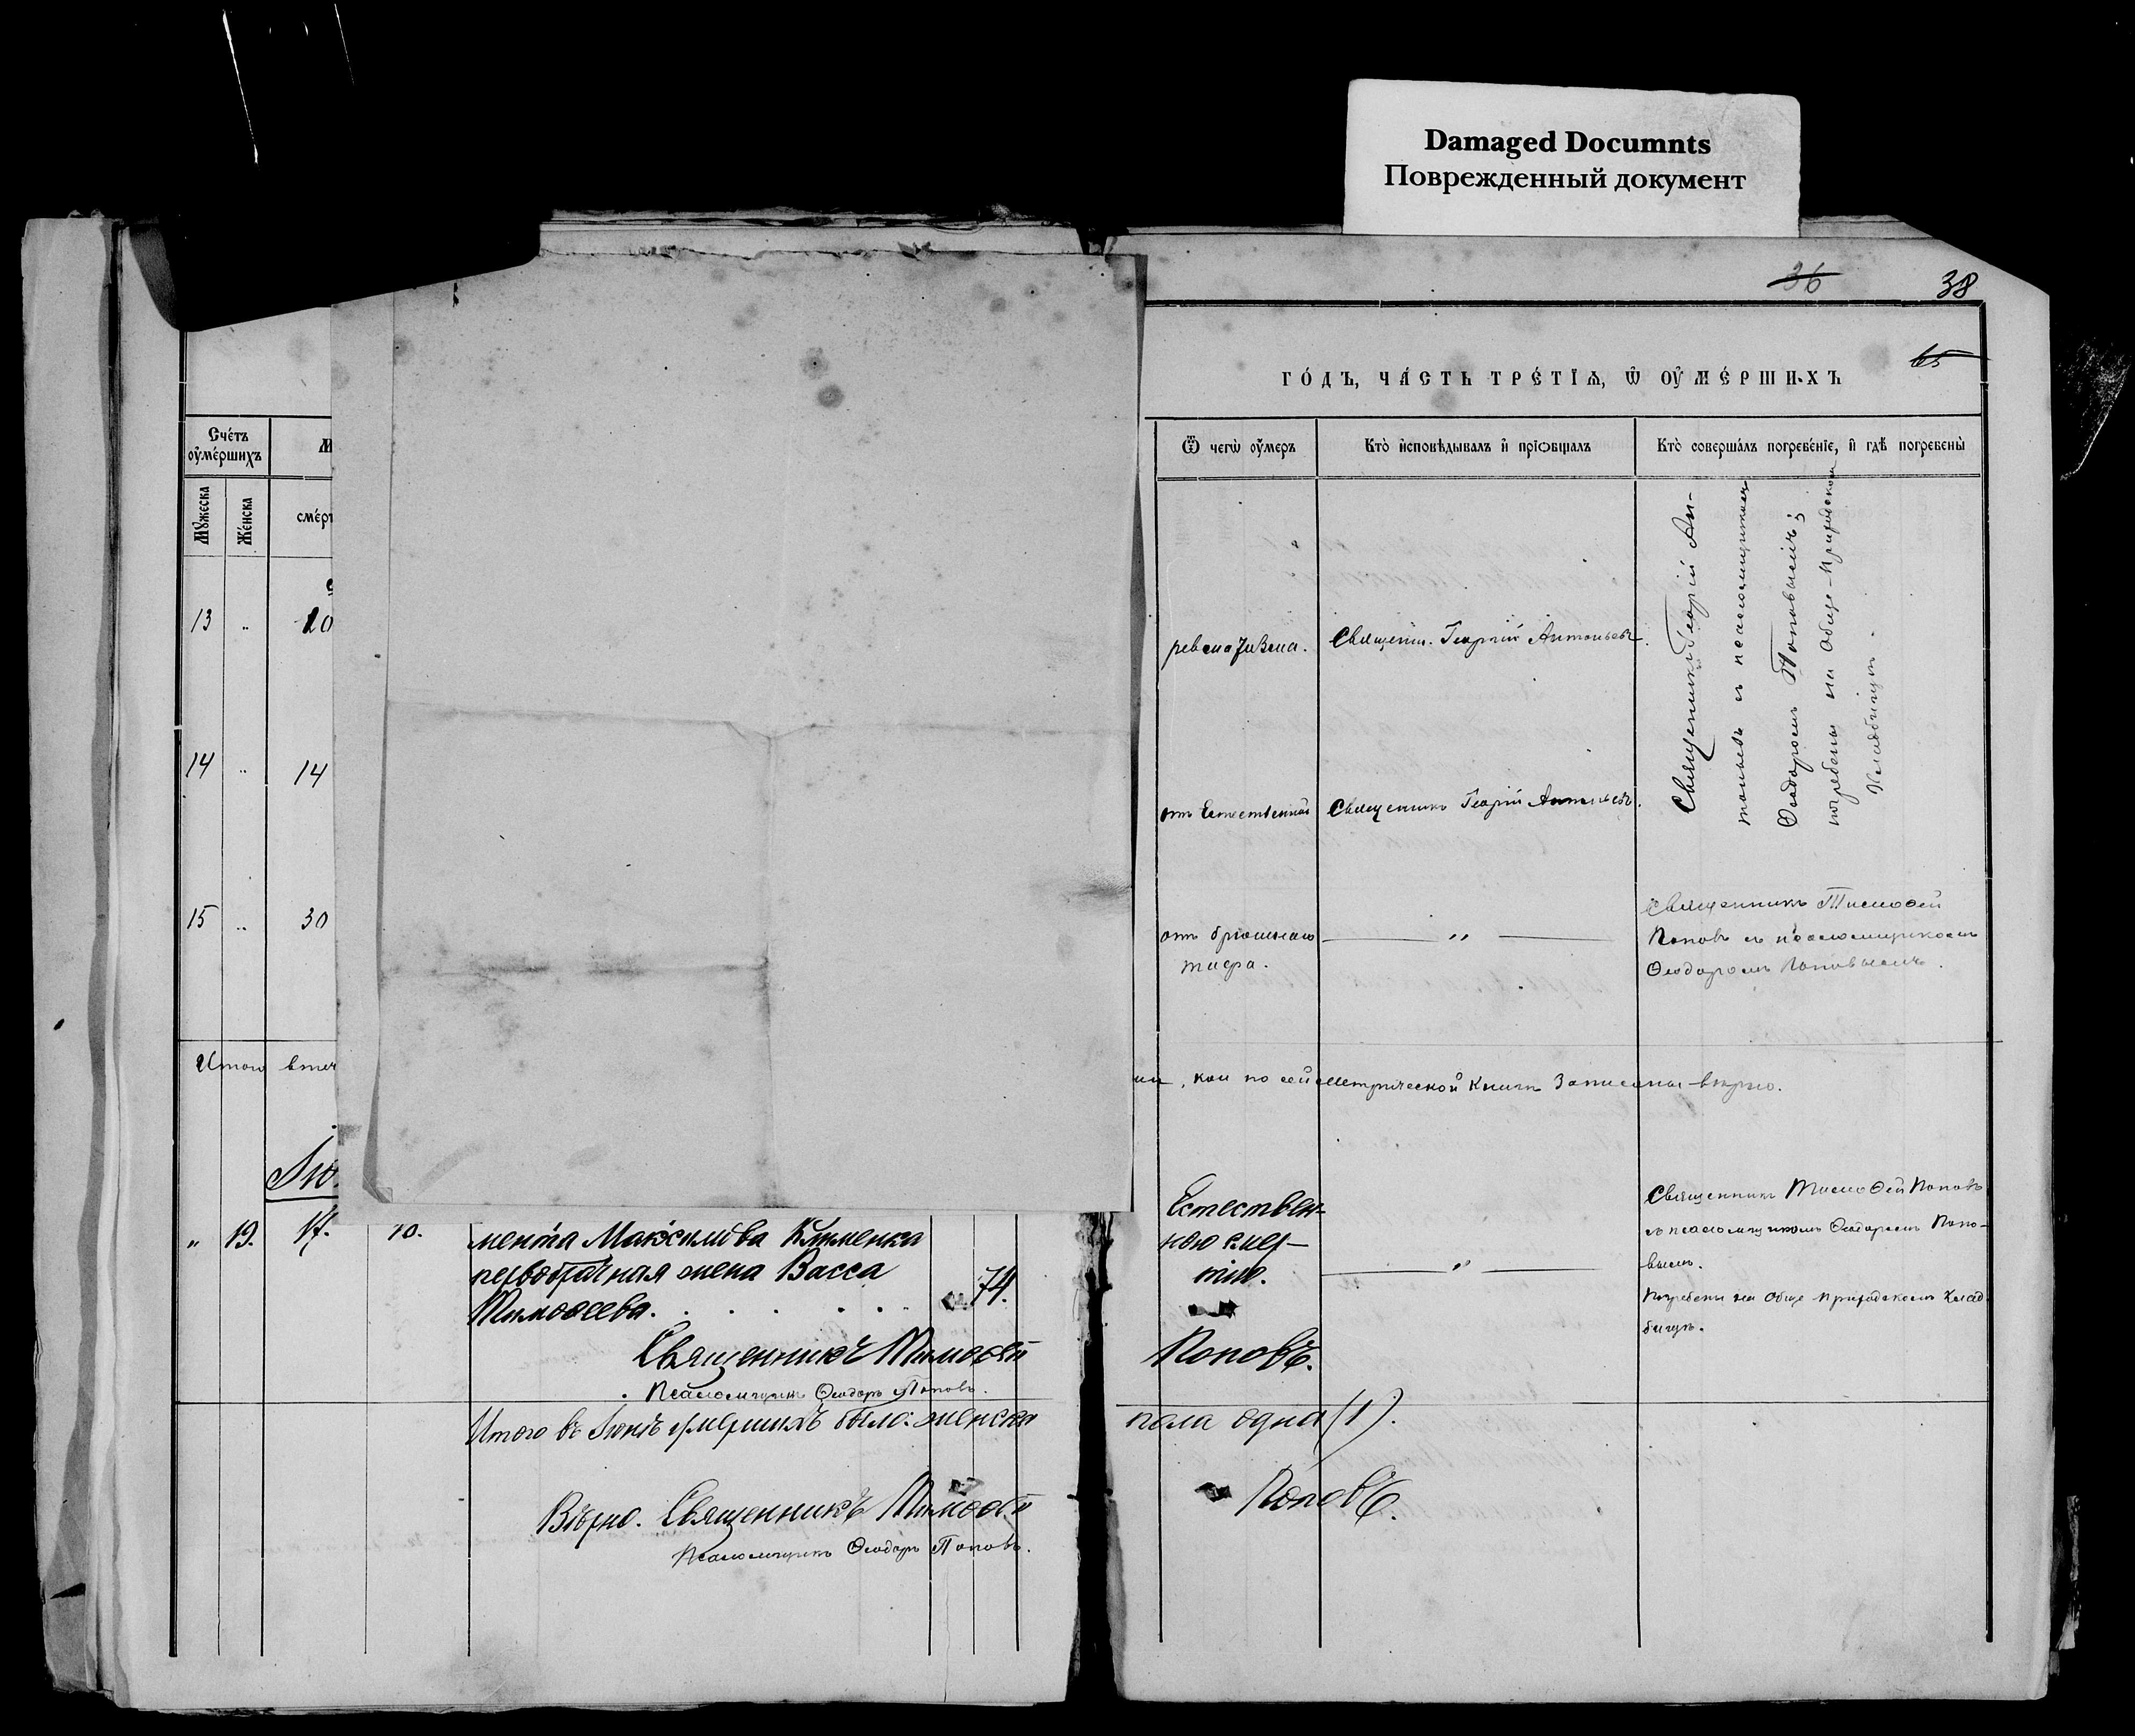 Damaged Documnts
Поврежденный документ
36
38
65
ГО́ДЪ, ЧА́СТЬ ТРЕ́ТІѦ, Ѡ҆ ОУ҆МЕ́РШИХЪ
Сче́тъ
оу҆ме́ршихъ
М
Мꙋ́жеска
Же́нска
сме́р
Ѿ чегѡ̀ оу҆́меръ
Кто̀ и҆сповѣ́дывалъ и҆ прїѻбща́лъ
Кто̀ соверша́лъ погребе́нїе, и҆ гдѣ̀ погребены̀
13 " 20
ревматизма.
Священ. Георгій Антоньевъ.
Священникъ Георгій Ан-
тоньевъ съ псаломщикомъ
Ѳеодоромъ Поповымъ;
погребены на Обще-приходскомъ
Кладбищѣ.
14 " 14
отъ Естественной
Священникъ Георгій Антоньевъ.
15 " 30
отъ брюшного
тифа.
"
Священникъ Тимоѳей
Поповъ съ псаломщикомъ
Ѳеодоромъ Поповымъ.
Итого втеч
, кои по сей метрической книгѣ записаны вѣрно.
Ію
" 19. 17.
мента Максимова Клименка
первобрачная жена Васса
Тимоѳеева. 74.
Естествен-
ною смер-
тію.
"
Священникъ Тимоѳей Поповъ
съ псаломщикомъ Ѳеодоромъ Попо-
вымъ.
Погребена на Обще приходскомъ Клад-
бищѣ.
Священникъ Тимоѳей Поповъ.
Псаломщикъ Ѳеодоръ Поповъ.
Итого въ Іюнѣ умершихъ было: женска пола одна (1).
Вѣрно. Священникъ Тимоѳей Поповъ.
Псаломщикъ Ѳеодоръ Поповъ.